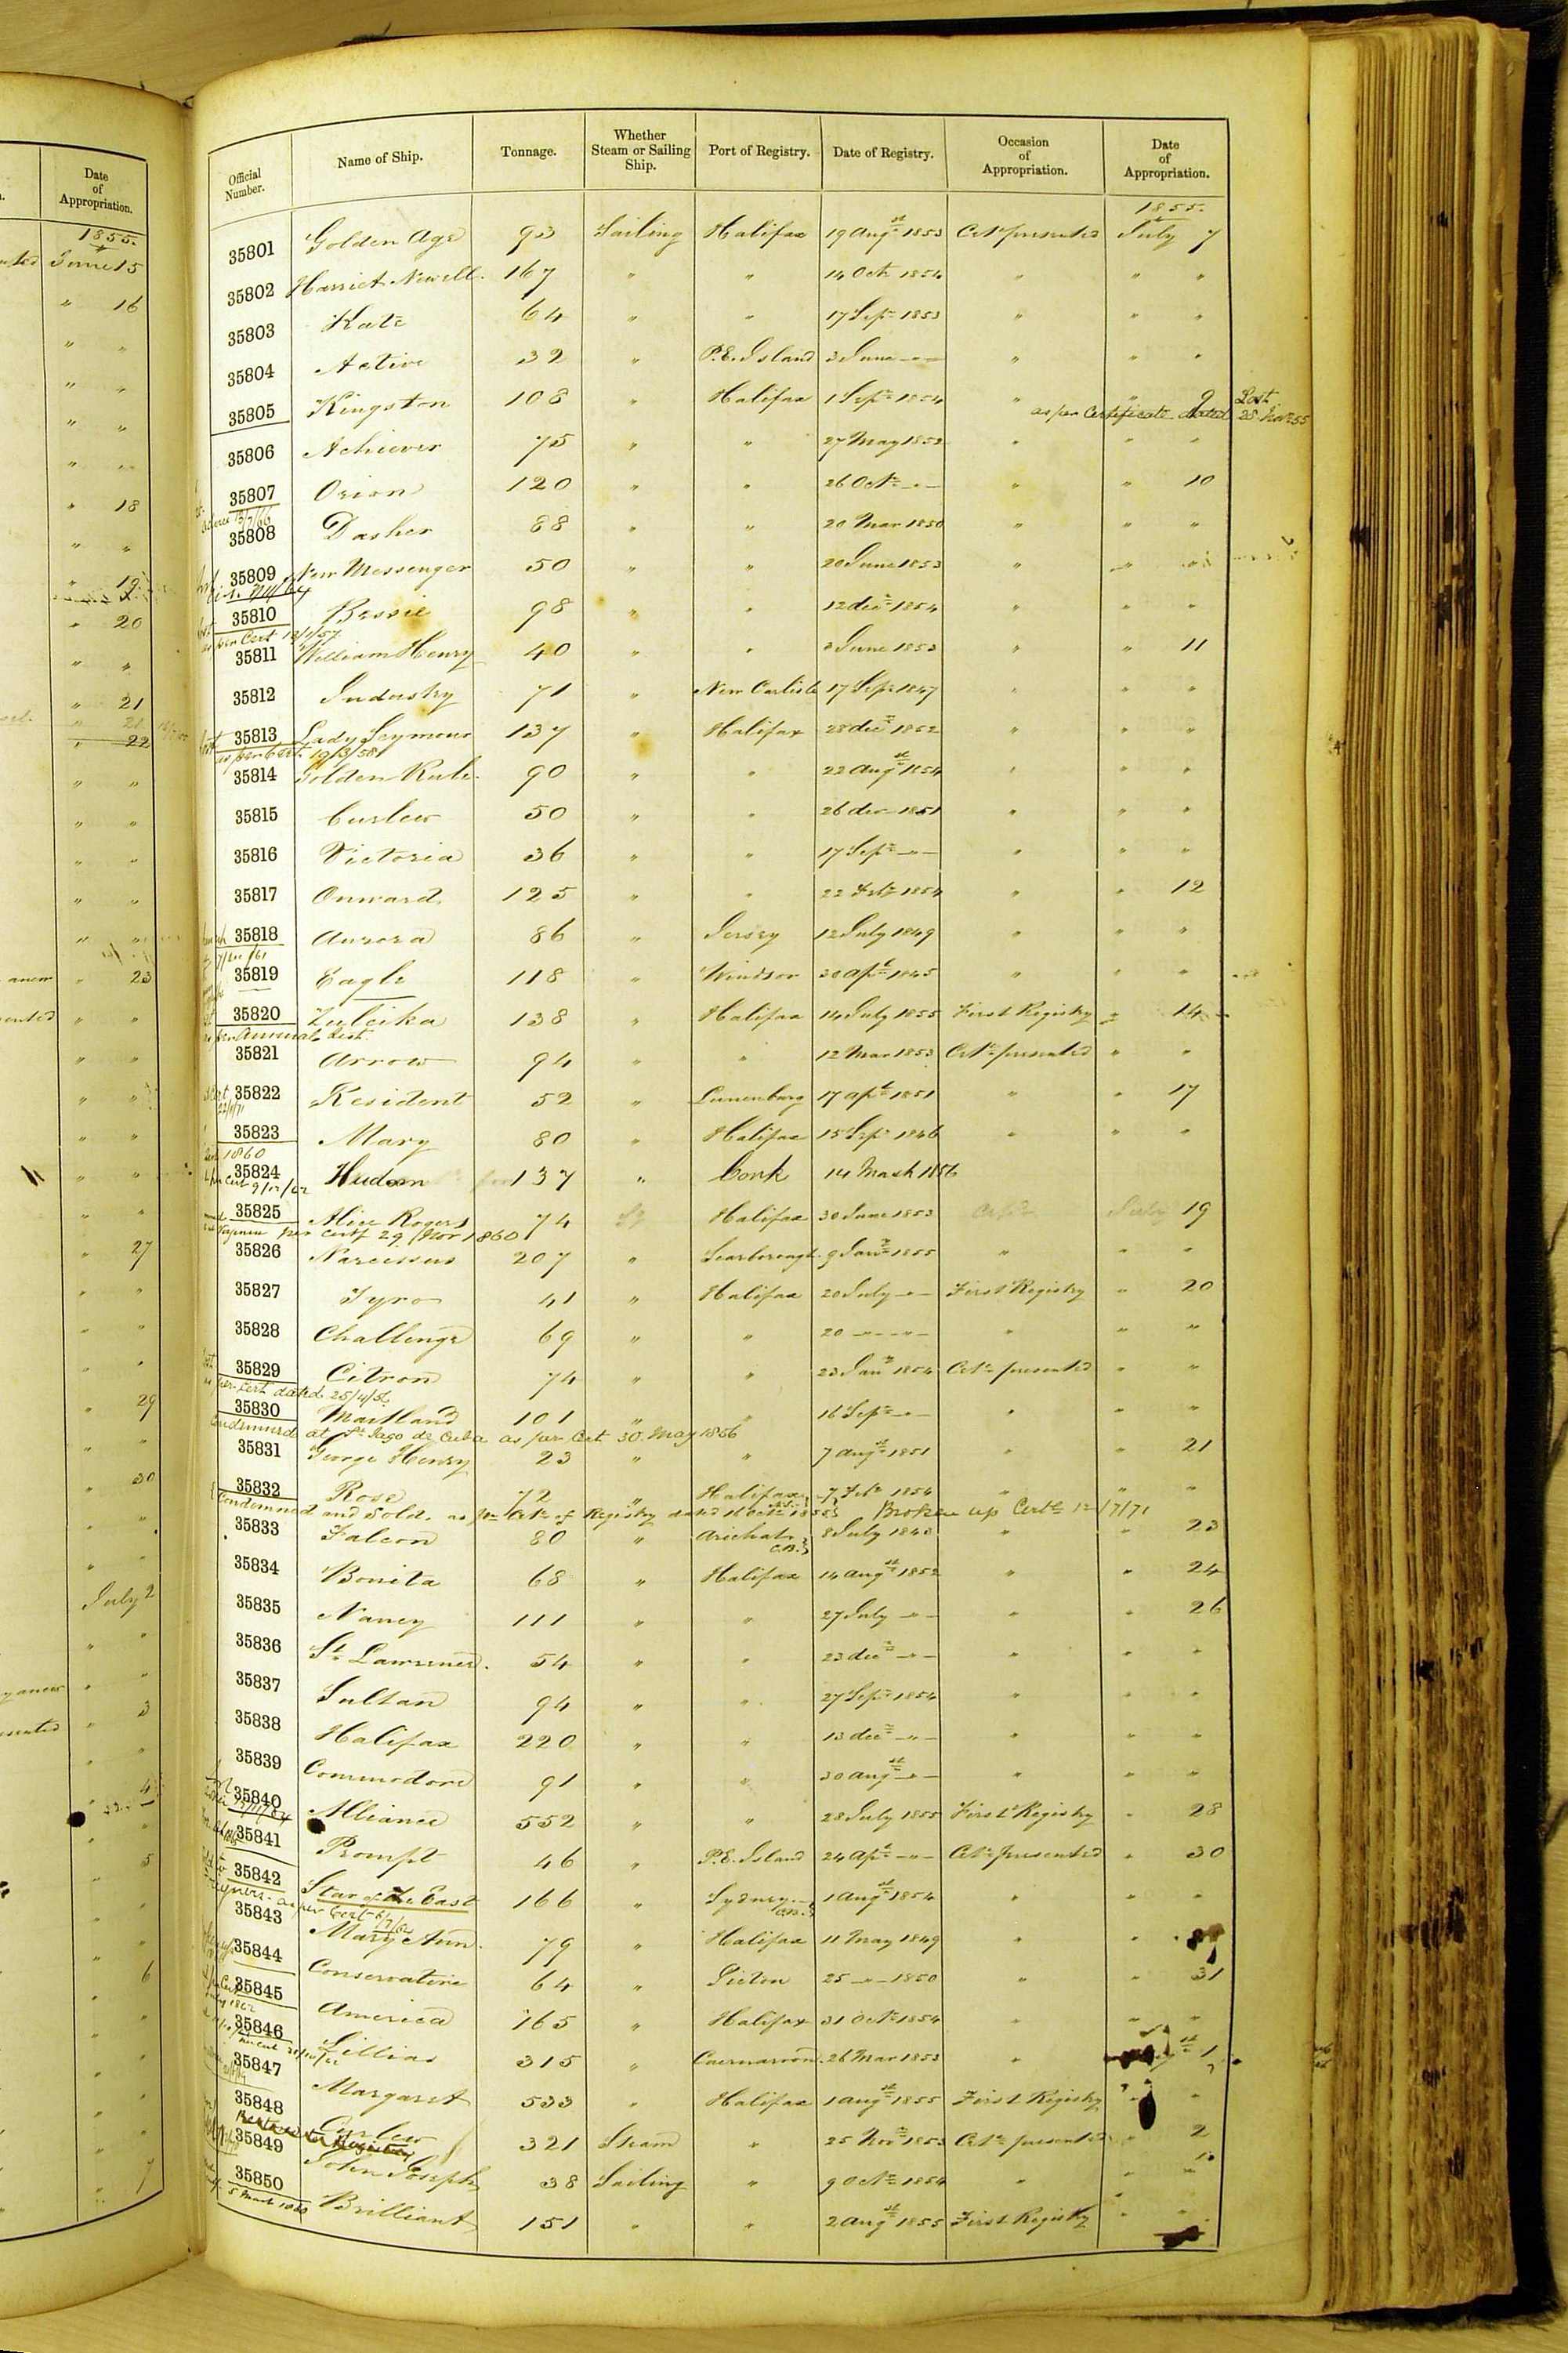 Date of Appropriation.
1855.
June 15
" 16
" "
" "
" "
" "
" 18
" "
" 19
" 20
" "
" 21
" 22
" "
" "
" "
" "
" "
" 23
" "
" "
" "
" "
" "
" "
" 27
" "
" "
" "
" 29
" "
" 30
" "
" "
July 2
" "
" "
" 3
" "
" 4
" "
" 5
" "
" "
" 6
" "
" "
" "
" "
" 7
Official Number. Name of Ship. Tonnage. Whether Steam or Sailing Ship. Port of Registry. Date of Registry. Occasion of Appropriation. Date of Appropriation.
1855.
35801 Golden Age 93 Sailing Halifax 19 Augst 1853 Certe presented July 7
35802 Harriet Newell 167 " " 14 Octr 1854 " " "
35803 Kate 64 " " 17 Sepr 1853 " " "
35804 Active 32 " P.E. Island 3 June -"- " " "
35805 Kingston 108 " Halifax 1 Sepr 1854 " " 9 Lost
as per Certificate dated 28 Novr 55
35806 Achiever 75 " " 27 May 1852 " " "
35807 Orion 120 " " 26 Octr -"- " " 10
35808 Dasher 88 " " 20 Mar 1850 " " "
35809 New Messenger 50 " " 20 June 1853 " " "
35810 Bessie 98 " " 12 decr 1854 " " "
as per Cert 13/1/57
35811 William Henry 40 " " June 1853 " " 11
35812 Industry 71 " New Carlisle 17 Sepr 1847 " " "
35813 Lady Seymour 137 " Halifax 28 decr 1852 " " "
as per Cert. 19/3/58
35814 Golden Rule 90 " " 22 Augst 1854 " " "
35815 Curlew 50 " " 26 decr 1851 " " "
35816 Victoria 36 " " 17 Sepr -"- " " "
35817 Onward 125 " " 22 Feby 1854 " " 12
35818 Aurora 86 " Jersey 12 July 1849 " " "
35819 Eagle 118 " Windsor 30 Apl 1845 " " "
35820 Zuleika 138 " Halifax 14 July 1855 First Registry " 14
as per Annual List
35821 Arrow 94 " " 12 Mar 1853 Certe presented " "
35822 Resident 52 " Lunenburg 17 Apl 1851 " " 17
35823 Mary 80 " Halifax 15 Sepr 1846 " " "
1860
35824 137 " Cork 14 March 1856
35825 Alice Rogers 74 Halifax 30 June 1853 July 19
per Certf 29 Nov 1860
35826 Narcissus 207 " Scarborough 9 Jany 1855 " " "
35827 Tyro 41 " Halifax 20 July -"- First Registry " 20
35828 Challenge 69 " " 20 -"- -"- " " "
35829 Citron 74 " " 23 Jany 1854 Certe presented " "
as per Cert dated 25/4/56
35830 Maitland 101 " " 16 Sepr -"- " " "
Condemned at St Iago de Cuba as per Cert 30 May 1856
35831 George Henry 23 " " 7 Augst 1851 " " 21
35832 Rose 72 " Halifax N.S. 7 Feby 1854 " " "
Condemned and Sold. as per Certe of Registry dated Broken up Certe 12/7/71
35833 Falcon 80 " Arichat C.B. 8 July 1843 " " 23
35834 Bonita 68 " Halifax 14 Augst 1852 " " 24
35835 Nancy 111 " " 27 July -"- " " 26
35836 St Lawrence 54 " " 23 decr -"- " " "
35837 Sultan 94 " " 27 Sepr 1854 " " "
35838 Halifax 220 " " 13 decr -"- " " "
35839 Commodore 91 " " 30 Augst -"- " " "
35840 Alliance 552 " " 28 July 1855 First Registry " 28
35841 Prompt 46 " P.E. Island 24 Apl -"- Certe presented " 30
35842 Star of the East 166 " Sydney C.B. 1 Augst 1854 " " "
as per Cert
35843 Mary Ann 79 " Halifax 11 May 1849 " "
35844 Conservative 64 " Pictou 25 -"- 1850 " " 31
35845 America 165 " Halifax 31 Octr 1854 " " "
35846 Lillias 315 " Caernarvon 26 Mar 1853 " 1
35847 Margaret 533 " Halifax 1 Augst 1855 First Registry " "
35848 Curlew 321 Steam " 25 Novr 1853 Certe presented " 2
35849 John Joseph 38 Sailing " 9 Octr 1854 " " "
35850 Brilliant 151 " " 2 Augst 1855 First Registry " "
5 March 1860